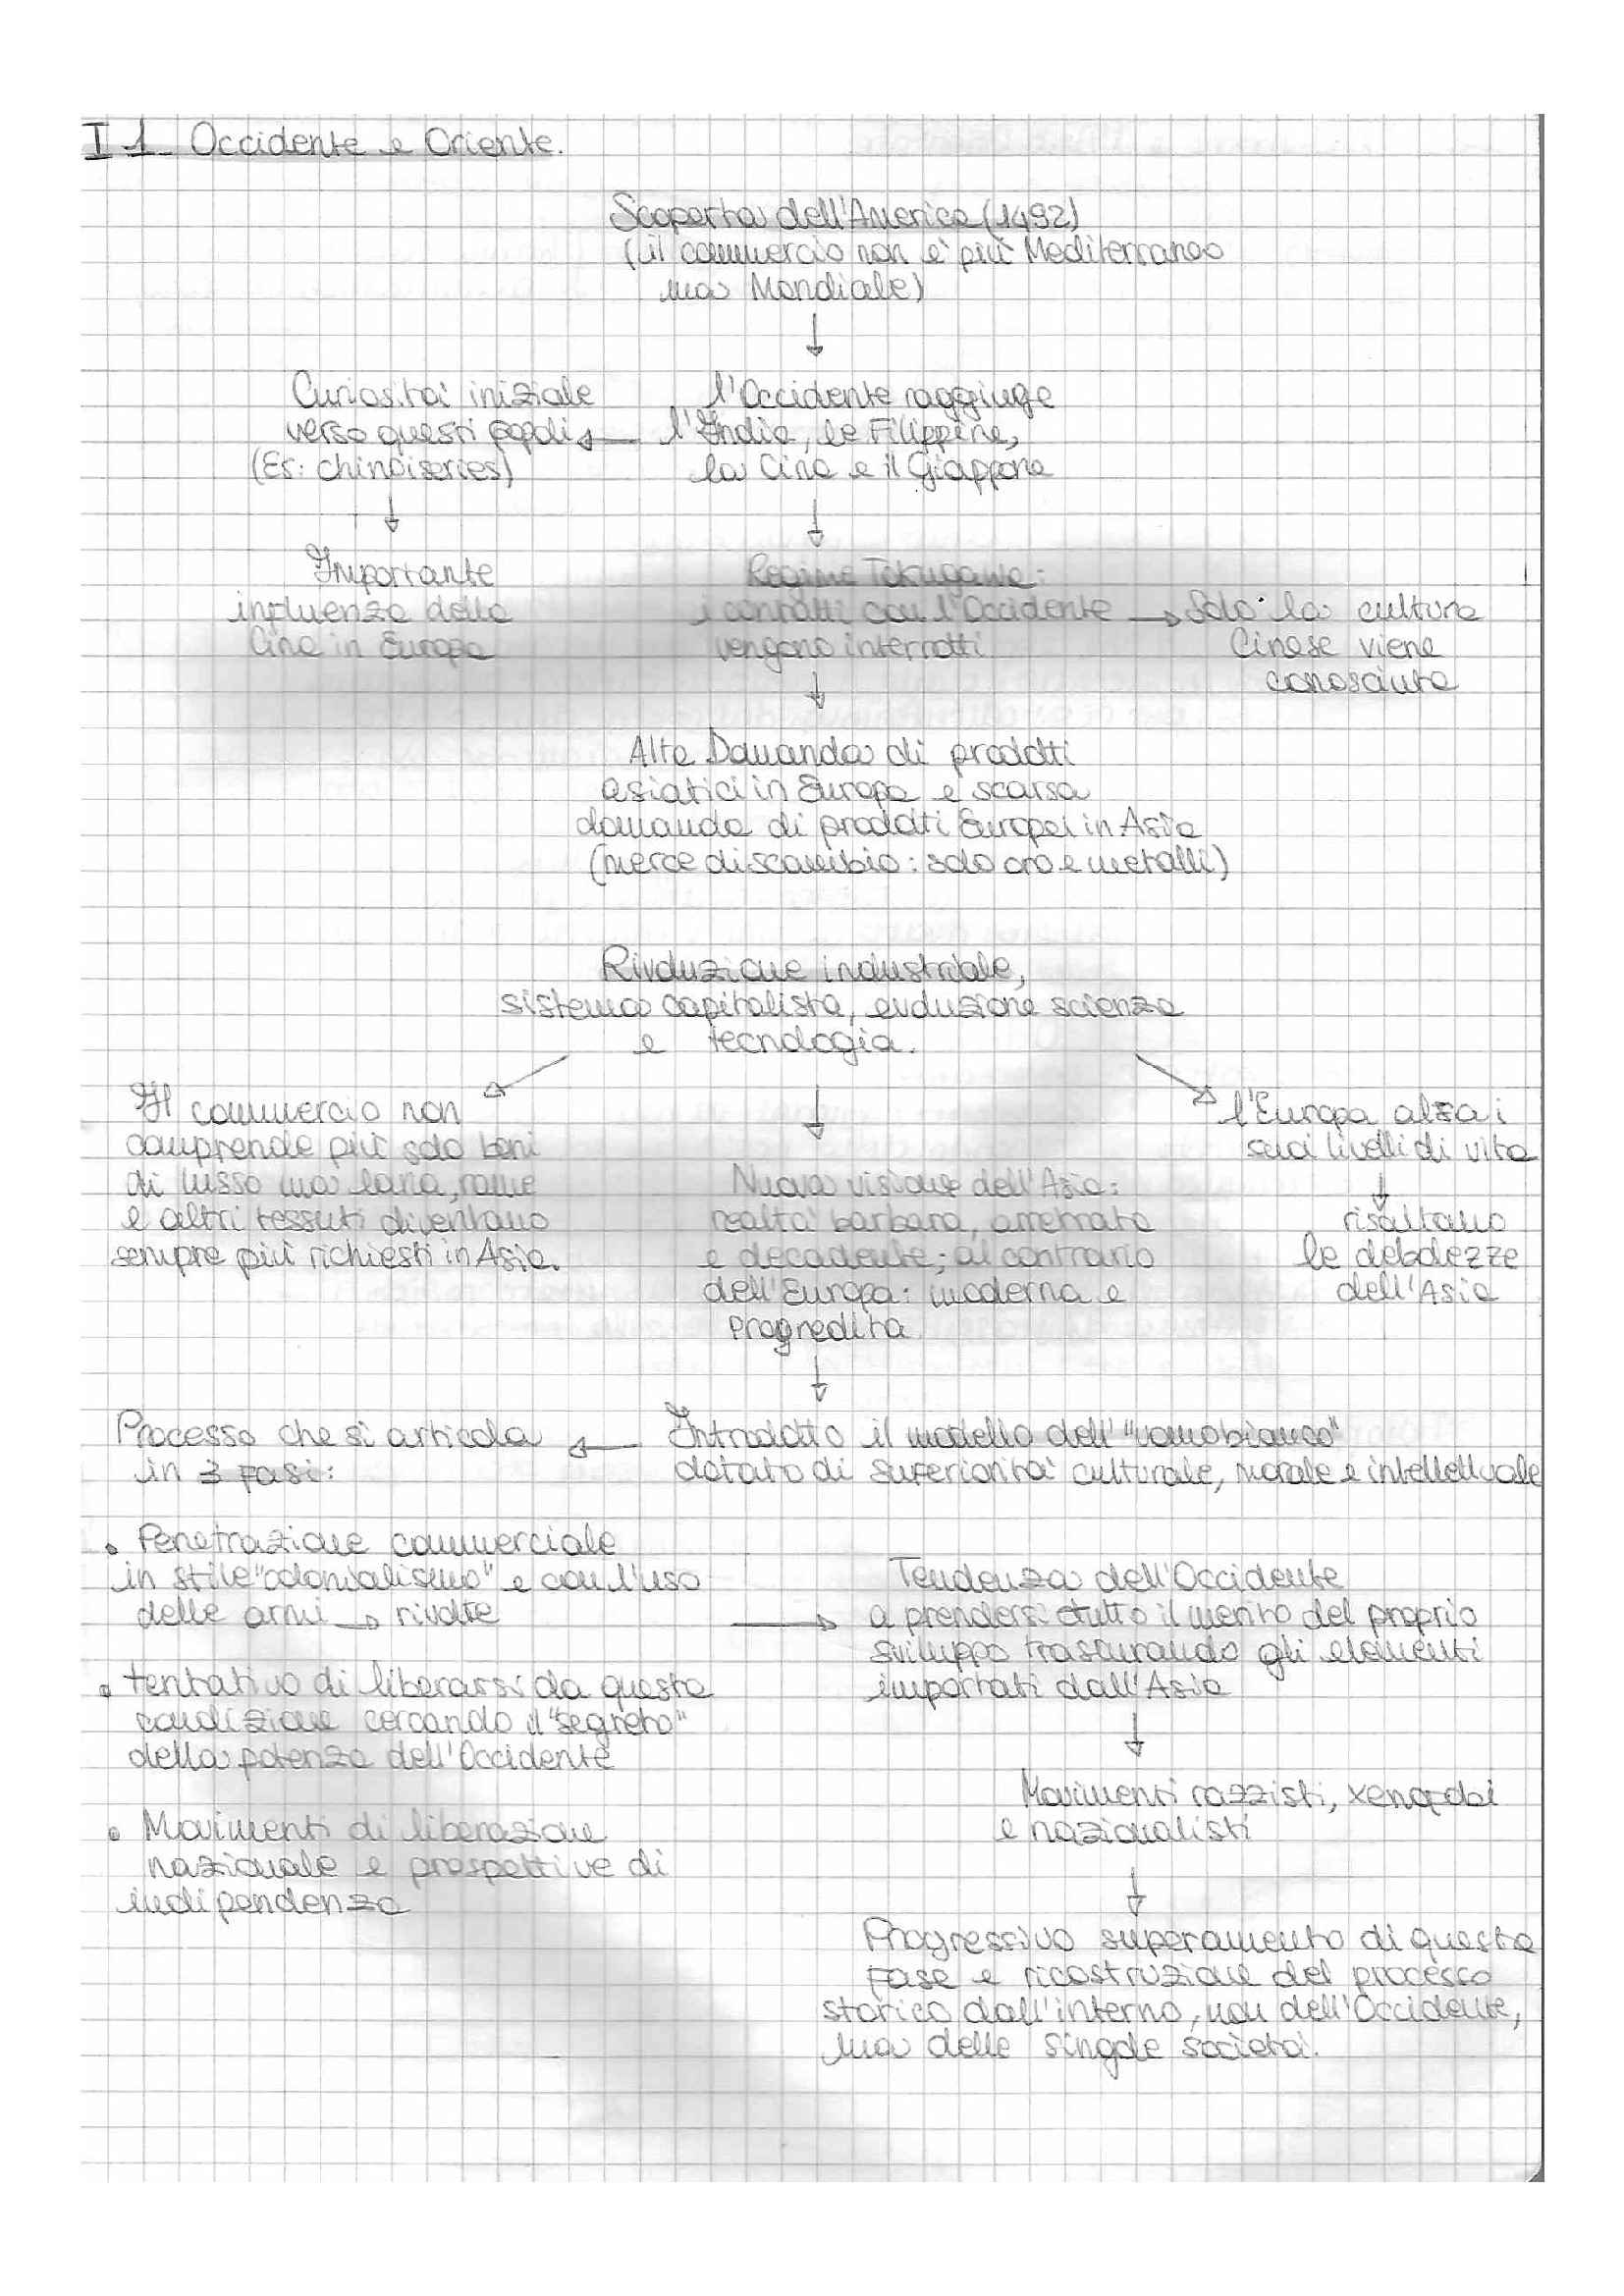 I 1 Occidente e Oriente.
Scoperta dell'America (1492)
(il commercio non è più Mediterraneo
ma Mondiale)
↓
l'Occidente raggiunge
l'India, le Filippine,
la Cina e il Giappone
←
Curiosità iniziale
verso questi popoli
(Es: chinoiseries)
↓
Importante
influenza della
Cina in Europa
↓
Regime Tokugawa:
i contatti con l'Occidente
vengono interrotti
→
Solo la cultura
Cinese viene
conosciuta
↓
Alta Domanda di prodotti
asiatici in Europa e scarsa
domanda di prodotti Europei in Asia
(merce di scambio: solo oro e metalli)
Rivoluzione industriale,
sistema capitalista, evoluzione scienza
e tecnologia.
Il commercio non
comprende più solo beni
di lusso ma lana, rame
e altri tessuti diventano
sempre più richiesti in Asia.
↓
Nuova visione dell'Asia:
realtà barbara, arretrata
e decadente; al contrario
dell'Europa: moderna e
progredita
l'Europa alza i
suoi livelli di vita
↓
risaltano
le debolezze
dell'Asia
↓
Introdotto il modello dell'"uomo bianco"
dotato di superiorità culturale, morale e intellettuale
←
Processo che si articola
in 3 fasi:
• Penetrazione commerciale
in stile "colonialismo" e con l'uso
delle armi → rivolte
• tentativo di liberarsi da questa
condizione cercando il "segreto"
della potenza dell'Occidente
• Movimenti di liberazione
nazionale e prospettive di
indipendenza
→
Tendenza dell'Occidente
a prendersi tutto il merito del proprio
sviluppo trascurando gli elementi
importati dall'Asia
↓
Movimenti razzisti, xenofobi
e nazionalisti
↓
Progressivo superamento di questa
fase e ricostruzione del processo
storico dall'interno, non dell'Occidente,
ma delle singole società.